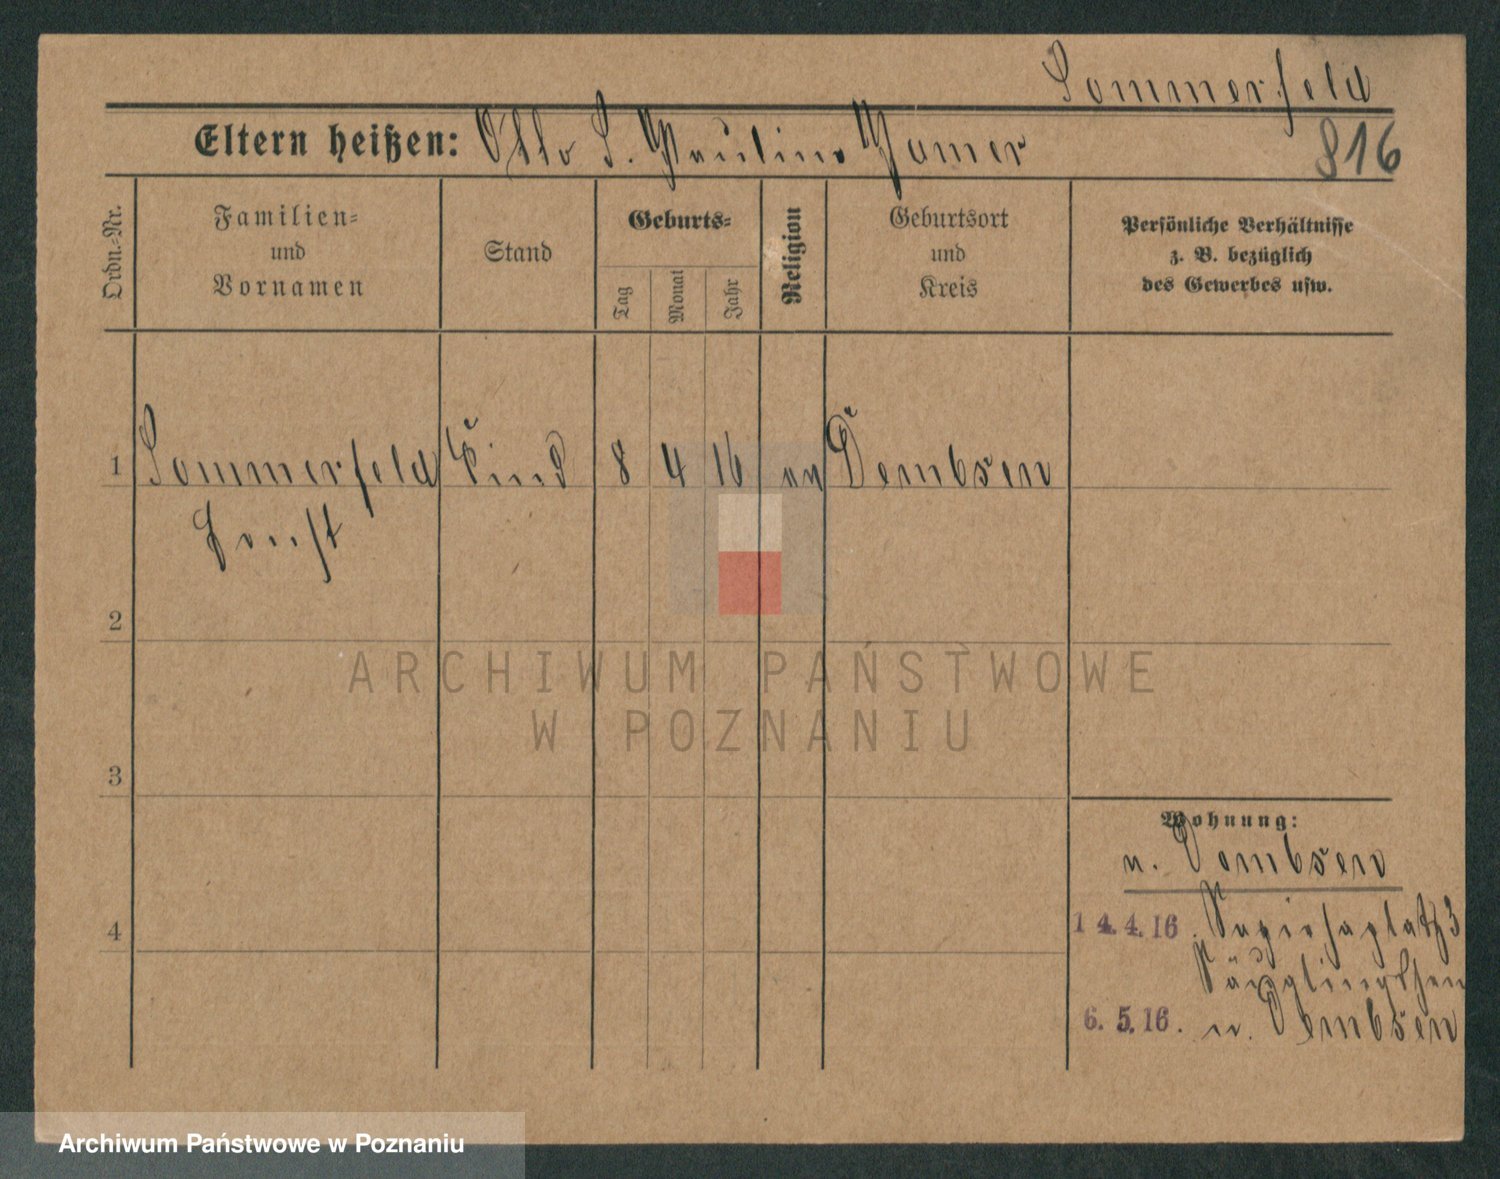 Sommerfeld
816
Eltern heißen: Otto S. Pauline
Ordn.-Nr.
Familien-
und
Vornamen
Stand
Geburts-
Tag
Monat
Jahr
Religion
Geburtsort
und
Kreis
Persönliche Verhältnisse
z. B. bezüglich
des Gewerbes usw.
1 Sommerfeld Kind 8 4 16 ev Dembsen
Horst
2
3
4
Wohnung:
n. Dembsen
14.4.16. Sapiehaplatz 3
Säuglingshem
6.5.16. n. Dembsen
ARCHIWUM PAŃSTWOWE
W POZNANIU
Archiwum Państwowe w Poznaniu